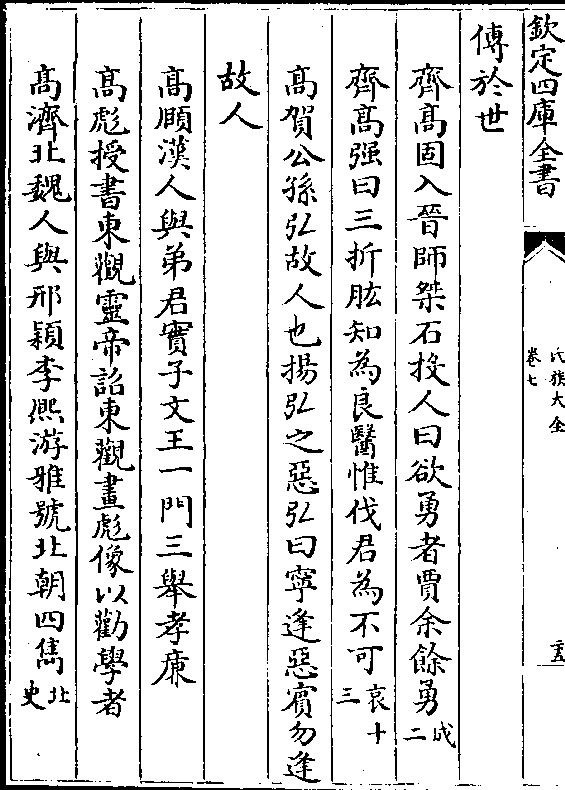 欽定四庫全書
氏族大全
卷七
十五
傳於世
齊高固入晉師桀石投人曰欲勇者賈余餘勇成二
齊高强曰三折肱知為良醫惟伐君為不可哀十三
高賀公孫弘故人也揚弘之惡弘曰寧逢惡賓勿逢
故人
高頥漢人與弟君實子文王一門三舉孝亷
高彪授書東觀靈帝詔東觀畫彪像以勸學者
高濟北魏人與邢穎李熈游雅號北朝四雋北史